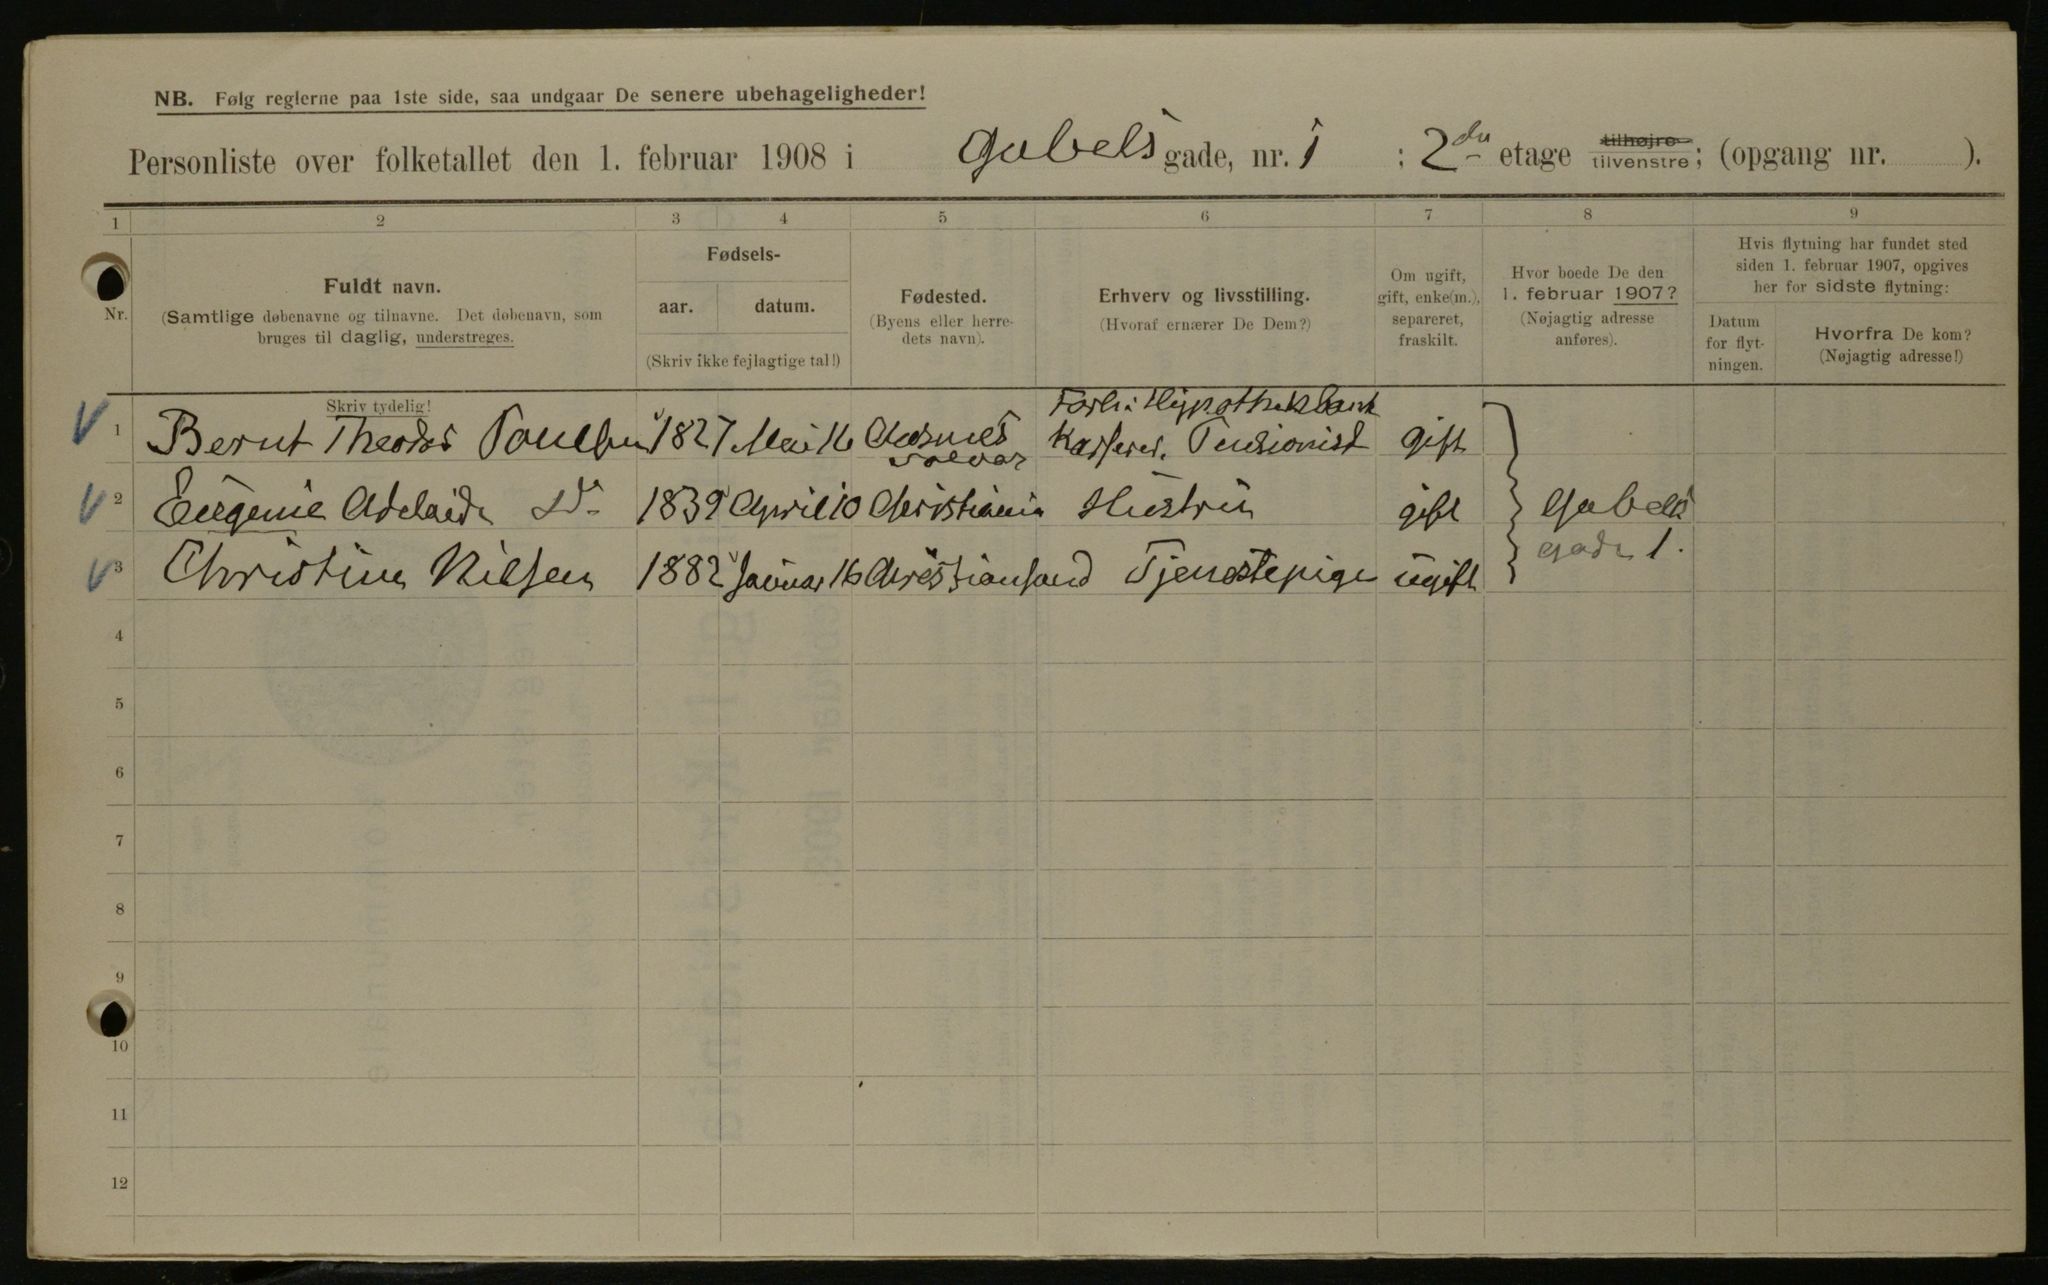 NB. Følg reglerne paa 1ste side, saa undgaar De senere ubehageligheder!
Personliste over folketallet den 1. februar 1908 i Gabels gade, nr. 1 : 2den etage tilhøjre tilvenstre; (opgang nr. ).
1 2 3 4 5 6 7 8 9
Nr.
Fuldt navn.
(Samtlige døbenavne og tilnavne. Det døbenavn, som
bruges til daglig, understreges.
Fødsels-
aar. datum.
(Skriv ikke fejlagtige tal!)
Fødested.
(Byens eller herre-
dets navn).
Erhverv og livsstilling.
(Hvoraf ernærer De Dem?)
Om ugift,
gift, enke(m.),
separeret,
fraskilt.
Hvor boede De den
1. februar 1907?
(Nøjagtig adresse
anføres).
Hvis flytning har fundet sted
siden 1. februar 1907, opgives
her for sidste flytning:
Datum
for flyt-
ningen.
Hvorfra De kom?
(Nøjagtig adresse!)
Skriv tydelig!
Forh: Hypothekbank
1 Bernt Theodor Poulsen 1827 Mai 16 Kasserer. Pensionist gift
2 Eugenie Adelaide Do 1839 April 10 Christiania Hustru gift Gabels
gade 1.
3 Christine Nilsen 1882 Januar 16 Christiansand Tjenestepige ugift
4
5
6
7
8
9
10
11
12